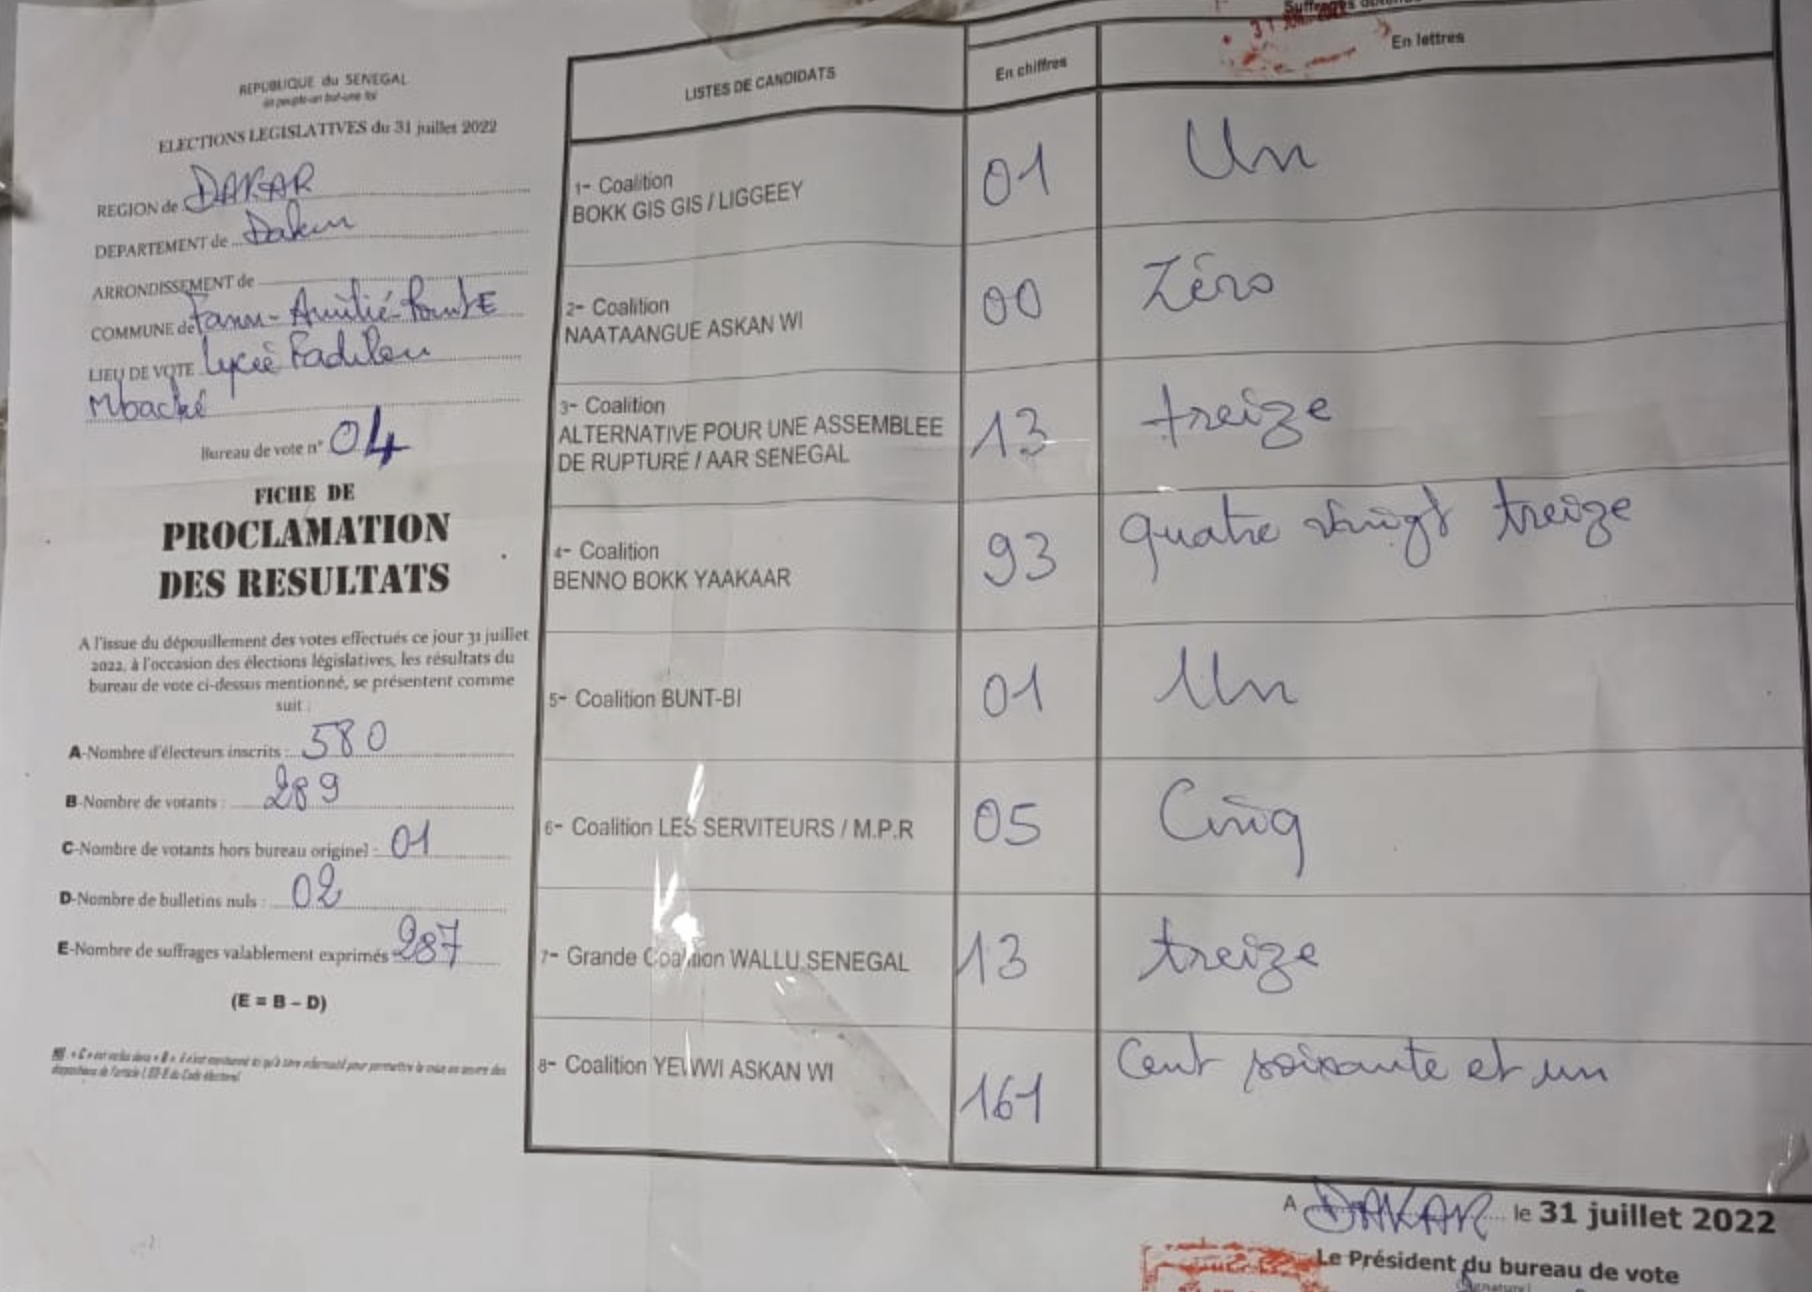 REPUBLIQUE du SENEGAL
un peuple-un but-une foi
ELECTIONS LEGISLATIVES du 31 juillet 2022
REGION de DAKAR
DEPARTEMENT de Dakar
ARRONDISSEMENT de
COMMUNE de Fann-Amitié-Point E
LIEU DE VOTE Lycée Fadilou
Mbacké
Bureau de vote n° 04
FICHE DE
PROCLAMATION
DES RESULTATS
A l'issue du dépouillement des votes effectués ce jour 31 juillet
2022, à l'occasion des élections législatives, les résultats du
bureau de vote ci-dessus mentionné, se présentent comme
suit :
A-Nombre d'électeurs inscrits : 580
B-Nombre de votants : 289
C-Nombre de votants hors bureau originel : 01
D-Nombre de bulletins nuls : 02
E-Nombre de suffrages valablement exprimés 287
(E = B – D)
NB : « C » est inclus dans « B », il n'est mentionné ici qu'à titre informatif pour permettre la mise en œuvre des
dispositions de l'article du Code électoral
Suffrages
31
LISTES DE CANDIDATS
En chiffres
En lettres
1- Coalition
BOKK GIS GIS / LIGGEEY
01
Un
2- Coalition
NAATAANGUE ASKAN WI
00
Zéro
3- Coalition
ALTERNATIVE POUR UNE ASSEMBLEE
DE RUPTURE / AAR SENEGAL
13
treize
4- Coalition
BENNO BOKK YAAKAAR
93
quatre vingt treize
5- Coalition BUNT-BI
01
Un
6- Coalition LES SERVITEURS / M.P.R
05
Cinq
7- Grande Coalition WALLU SENEGAL
13
treize
8- Coalition YEWWI ASKAN WI
161
Cent soixante et un
A DAKAR le 31 juillet 2022
Le Président du bureau de vote
(Signature)